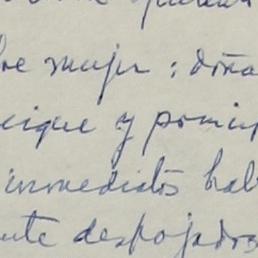 bre mujer: doña
cique y princip
inmediatos hab
nte despojados